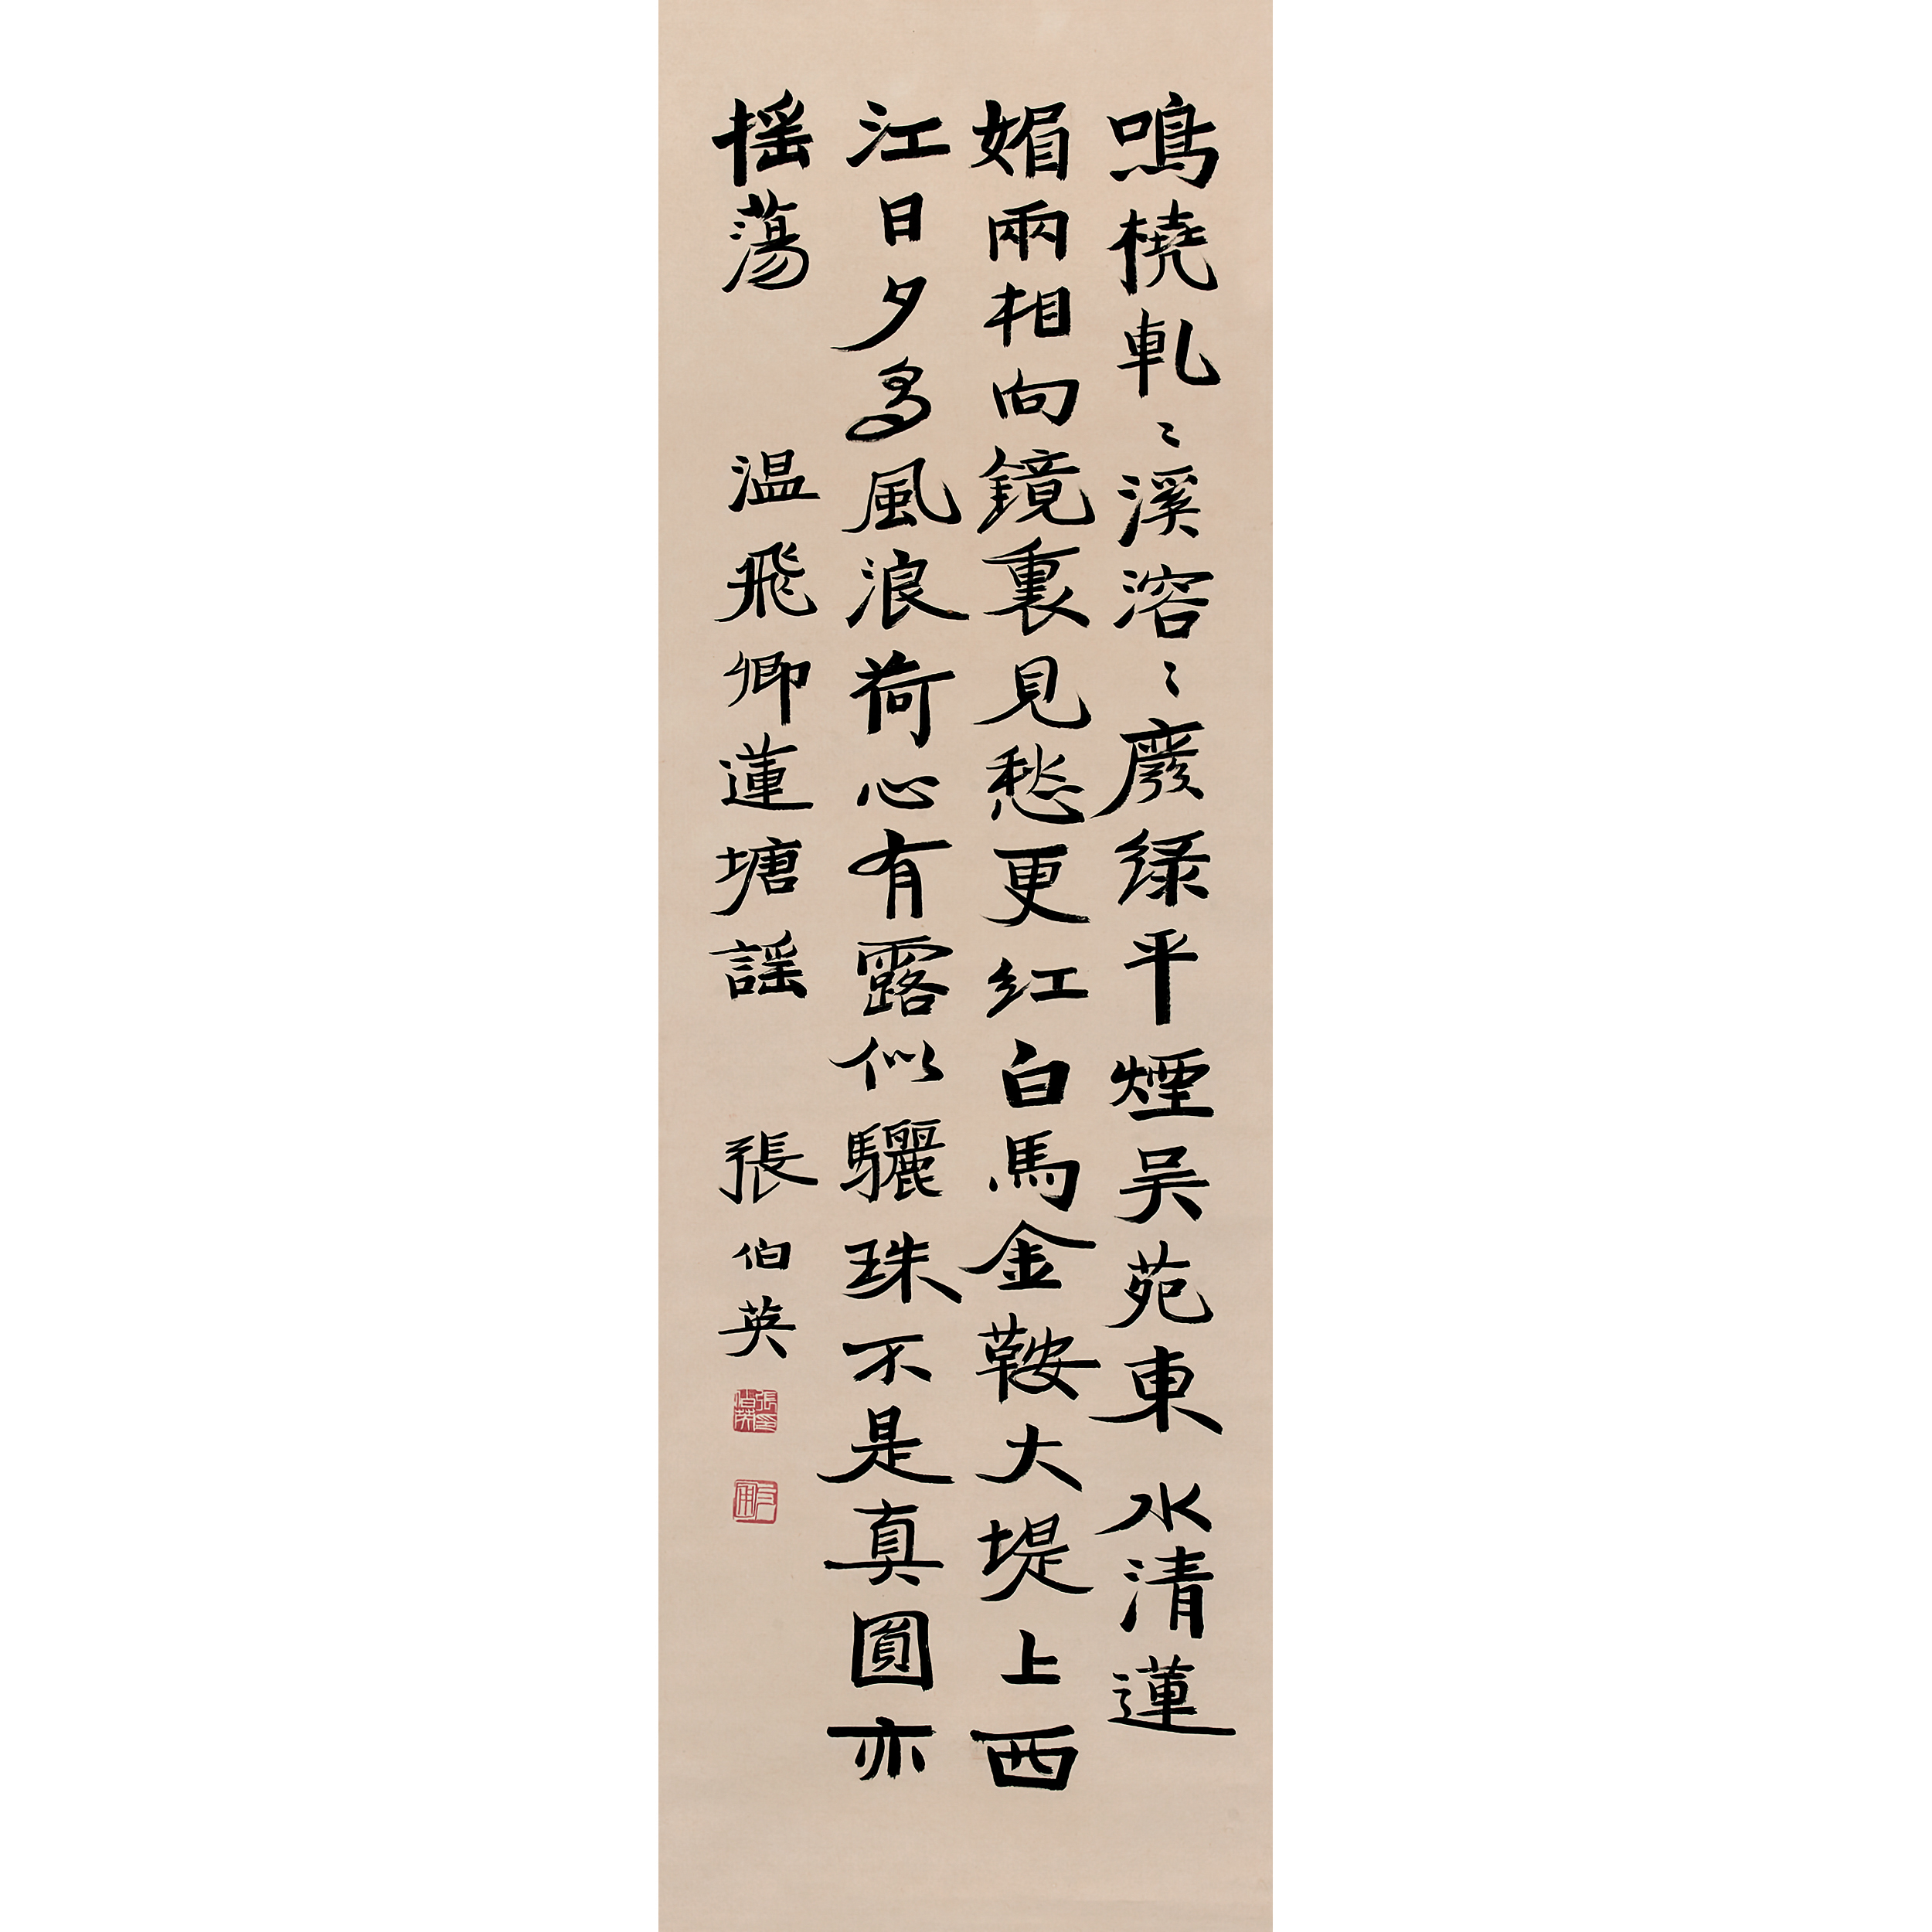 鳴橈軋〻溪溶〻廢緑平煙吴苑東水清蓮
媚兩相向鏡裏見愁愁更红白馬金鞍大堤上西
江日夕多風浪荷心有露似驪珠不是真圓亦
摇蕩 温飛卿蓮塘謡 張伯英
張伯英印